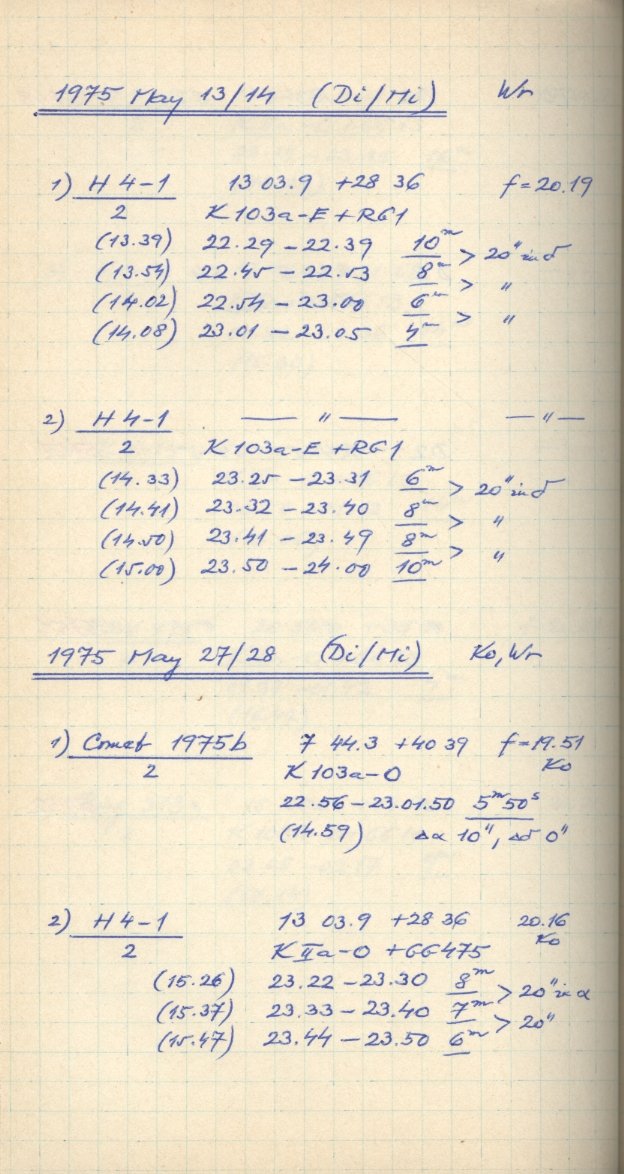 1975 May 13/14 (Di/Mi) Wr
1) H 4-1 13 03.9 +28 36 f=20.19
2 K103a-E+RG1
(13.39) 22.29-22.39 10m > 20" in δ
(13.54) 22.45-22.53 8m > "
(14.02) 22.54-23.00 6m > "
(14.08) 23.01-23.05 4m
2) H 4-1 — " — — " —
2 K103a-E+RG1
(14.33) 23.25-23.31 6m > 20" in δ
(14.41) 23.32-23.40 8m > "
(14.50) 23.41-23.49 8m > "
(15.00) 23.50-24.00 10m
1975 May 27/28 (Di/Mi) Ko, Wr
1) Comet 1975b 7 44.3 +40 39 f=19.51
2 K103a-O Ko
22.56-23.01.50 5m50s
(14.59) Δα 10", Δδ 0"
2) H 4-1 13 03.9 +28 36 20.16
2 KIIa-O+GG475 Ko
(15.26) 23.22-23.30 8m > 20" in α
(15.37) 23.33-23.40 7m > 20"
(15.47) 23.44-23.50 6m